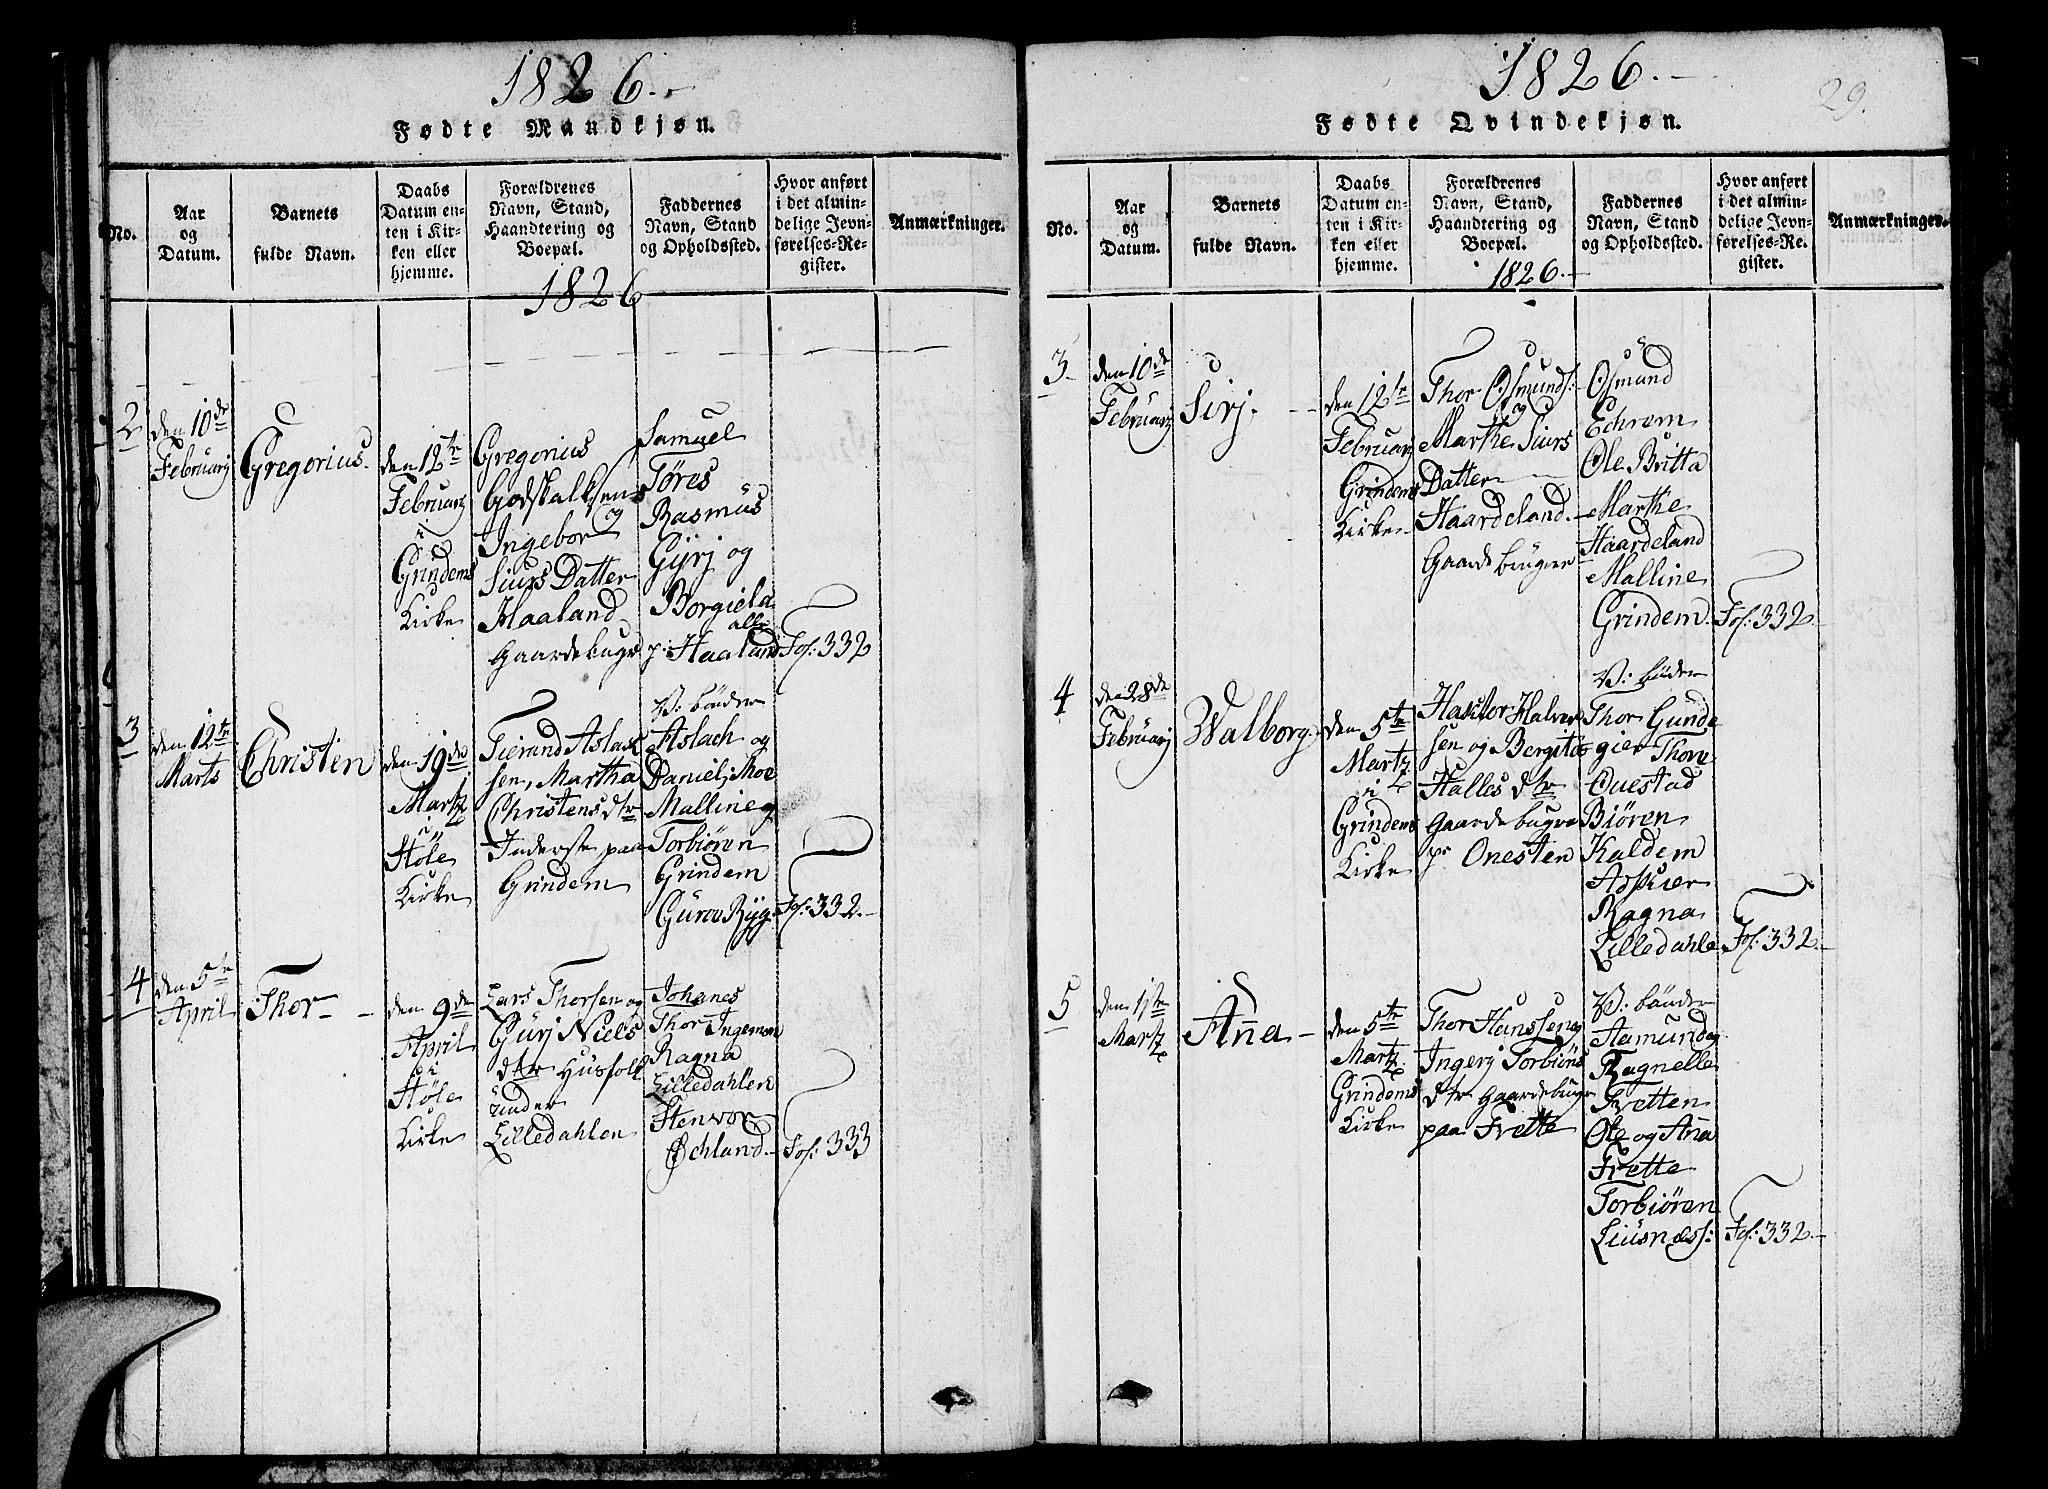 1826.
Fødte Mandkjøn.
No.
Aar
og
Datum.
Barnets
fulde Navn.
Daabs
Datum en-
ten i Kir-
ken eller
hjemme.
Forældrenes
Navn, Stand,
Haandtering og
Boepæl.
1826
Faddernes
Navn, Stand
og Opholdssted.
Hvor anført
i det almin-
delige Jevn-
førelses-Re-
gister.
Anmærkninger.
2
den 10de
Februarj
Gregorius.
den 12te
Februarj
i
Grindems
Kirke
Gregorius
Godskalksen
og
Ingebor
Siurs Datter
Haaland
Gaardebugr
Samuel
Töres
Rasmüs
Gÿrj og
Borgiela
alle
p: Haaland
Fol: 332
3
den 12te
Marts
Christen
den 19de
Martz
i
Höle
Kirke
Tierand Aslak
sen, Martha
Christens dtr
Inderste paa
Grindem
V: bönder
Aslach og
Daniel; Moe
Malline og
Torbiören
Grindem
Güroe Ryg.
Fol: 332.
4
den 5te
April
Thor
den 9de
April
i
Höle
Kirke
Lars Thorsen og
Gürj Niels
dtr Husfolk
under
Lilledahlen
Johanes
Thor Ingemon
Ragna
Lilledahlen
Stenvor
Øchland.
Fol: 333
1826.
29.
Fødte Qvindekjøn.
No.
Aar
og
Datum.
Barnets
fulde Navn.
Daabs
Datum en-
ten i Kir-
ken eller
hjemme.
Forældrenes
Navn, Stand,
Haandtering og
Boepæl.
1826.
Faddernes
Navn, Stand
og Opholdssted.
Hvor anført
i det almin-
delige Jevn-
førelses-Re-
gister.
Anmærkninger.
3
den 10de
Februarj
Sirj.
den 12te
Februarj
Grindems
Kirke
Thor Osmunds:
og
Marthe Siurs
Datter
Haardeland.
Gaardebrugere
Osmund
Echrem
Ole Britta
Marthe
Haardeland
Malline
Grindem.
Fol: 332.
4
den 28de
Februarj
Walborg.
den 5te
Martz
i
Grindems
Kirke
Halvor Halver
sen og Bergitæ
Halles dtr
Gaardebugre
p: Onesten
V: bönder
Thor Gunde
gier Thore
Ouestad
Biören
Kaldem
Aspier
Ragna
Lilledahle
Fol: 332.
5
den 1ste
Martz
Aña
den 5te
Martz
Grindems
Kirke
Thor Hanssen og
Ingerj Torbiöns
dtr Gaardebugr
paa Frette
V: bönder
Aamund og
Ragnelle
Fretten
Ole og Aña
Frette
Torbiören
Liusness:
Fol: 332.